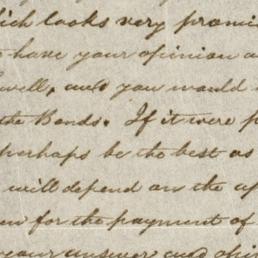 which looks very promis
have your opinion a
well, and you would
the Bonds. If it were p
perhaps be the best as
will depend on the ap
for the payment of
your answer and opi